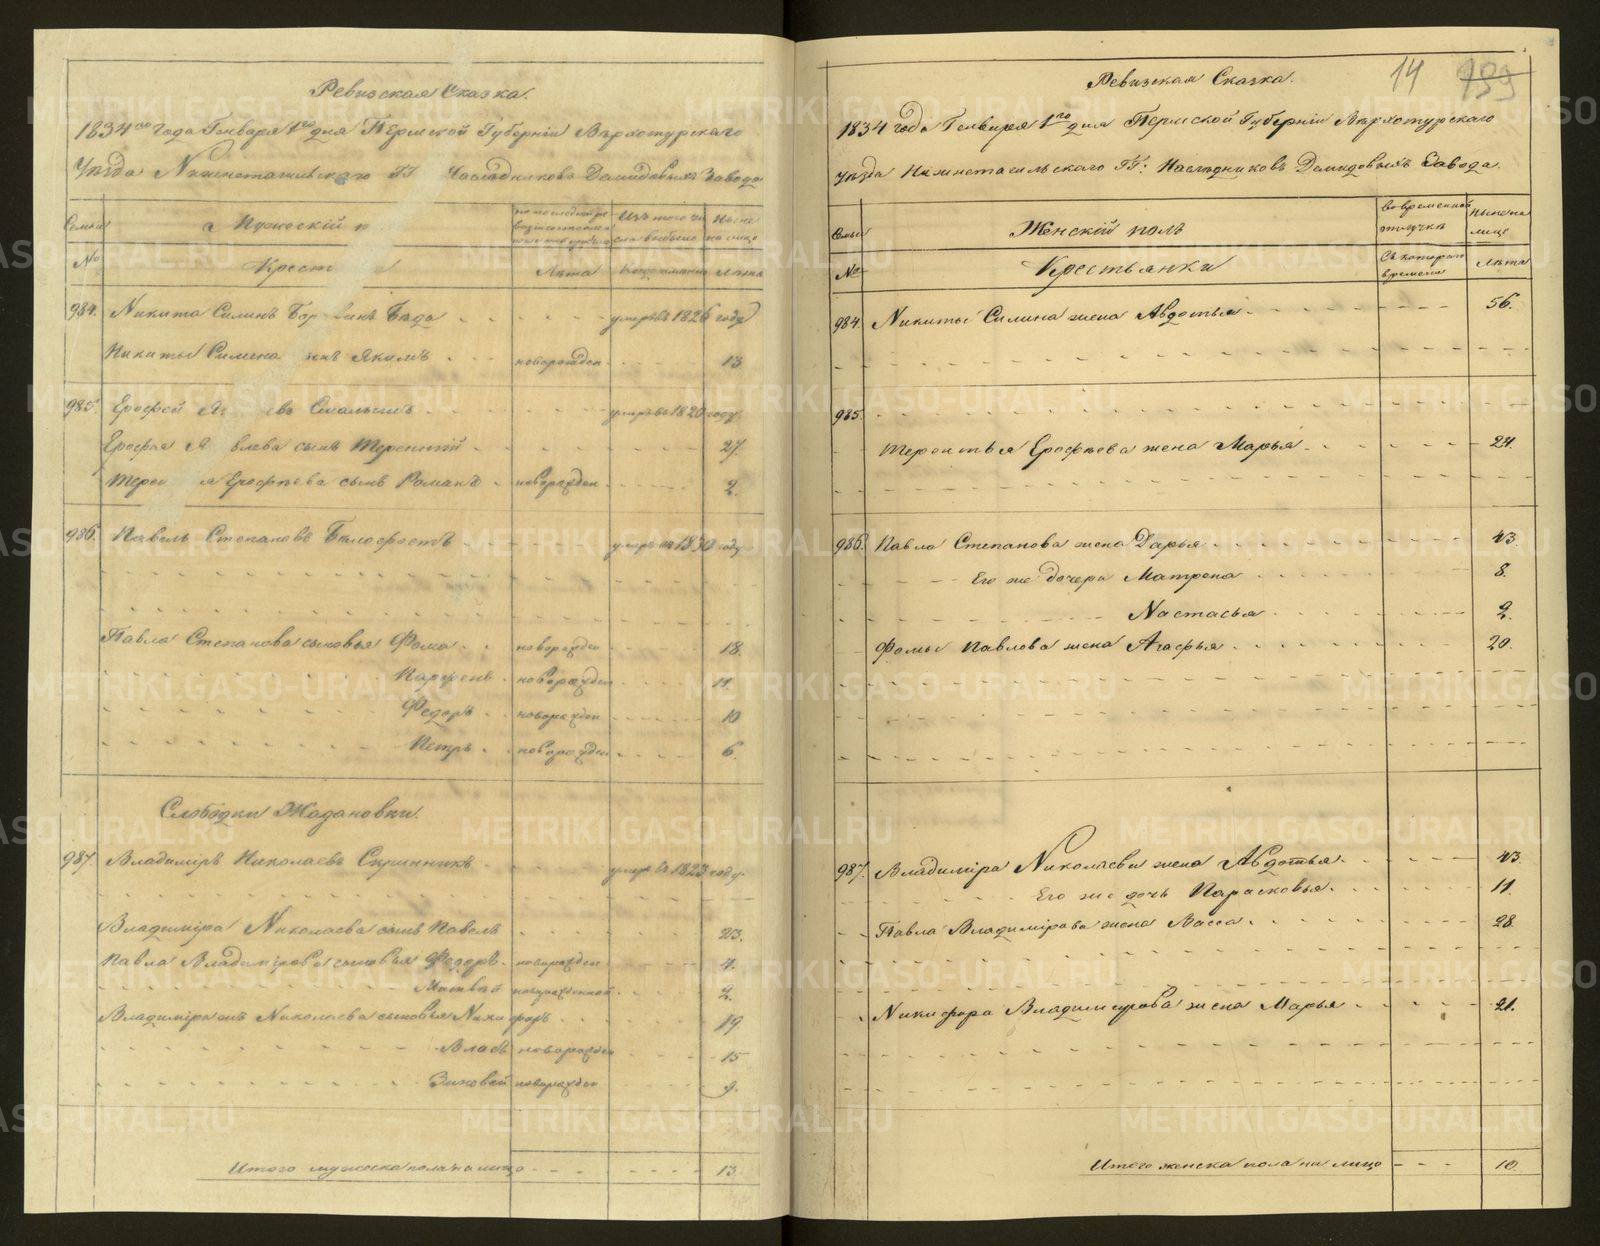 Ревизская Сказка.
1834го года Генваря 1го дня Пермской Губернiи Верхотурскаго
Уѣзда Нижнетагильскаго ГГ Наслѣдниковъ Демидовыхъ Завода
Семьи
Мужескiй п
Изъ того чи
сла выбыло
Ныне
на лицо
№
Крест
Лѣта
Когда именно
Лѣта
984. Никита Силинъ умеръ въ 1826 году
Никиты Силина сынъ Якимъ новорожден 13
985. Ерофей умеръ въ 1820 году
Ерофея Я влева сынъ Терентiй 27
Терен я Ерофѣева сынъ Романъ новорожден 2.
986. Павелъ Степановъ умеръ въ 1830 году
Павла Степанова сыновья Фома новорожден 18.
Парфенъ новорожден 11.
Федоръ новорожден 10
Петръ новорожден 6.
Слободки Жадановки.
987. Владимiръ Николаевъ умре въ 1823 году
Владимiра Николаева сынъ Павелъ 23.
Павла Владимiрова сыновья Федоръ новорожден 4.
Матвей новорожденной 2.
Владимiра жъ Николаева сыновья Никифоръ 19
Власъ новорожден 15
Зиновей новорожден 9.
Итого мужеска пола на лицо 13
14 199
Ревизская Сказка.
1834 года Генваря 1го дня Пермской Губернiи Верхотурскаго
Уѣзда Нижнетагильскаго ГГ: Наслѣдниковъ Демидовыхъ Завода.
Семьи
Женскiй полъ
Во временной
отлучкѣ
Ныне на
лице
№
Крестьянки
Съ котораго
времени
Лѣта
984. Никиты Силина жена Авдотья 56.
985.
Терентья Ерофѣева жена Марья 24.
986. Павла Степанова жена Дарья 43.
Его же дочери Матрена 8.
Настасья 2.
Фомы Павлова жена Агафья 20.
987. Владимiра Николаева жена Авдотья 43.
Его же дочь Парасковья 11.
Павла Владимiрова жена Васса 28.
Никифора Владимирова жена Марья 21.
Итого женска пола на лицо 10.
METRIKI.GASO-URAL.RU